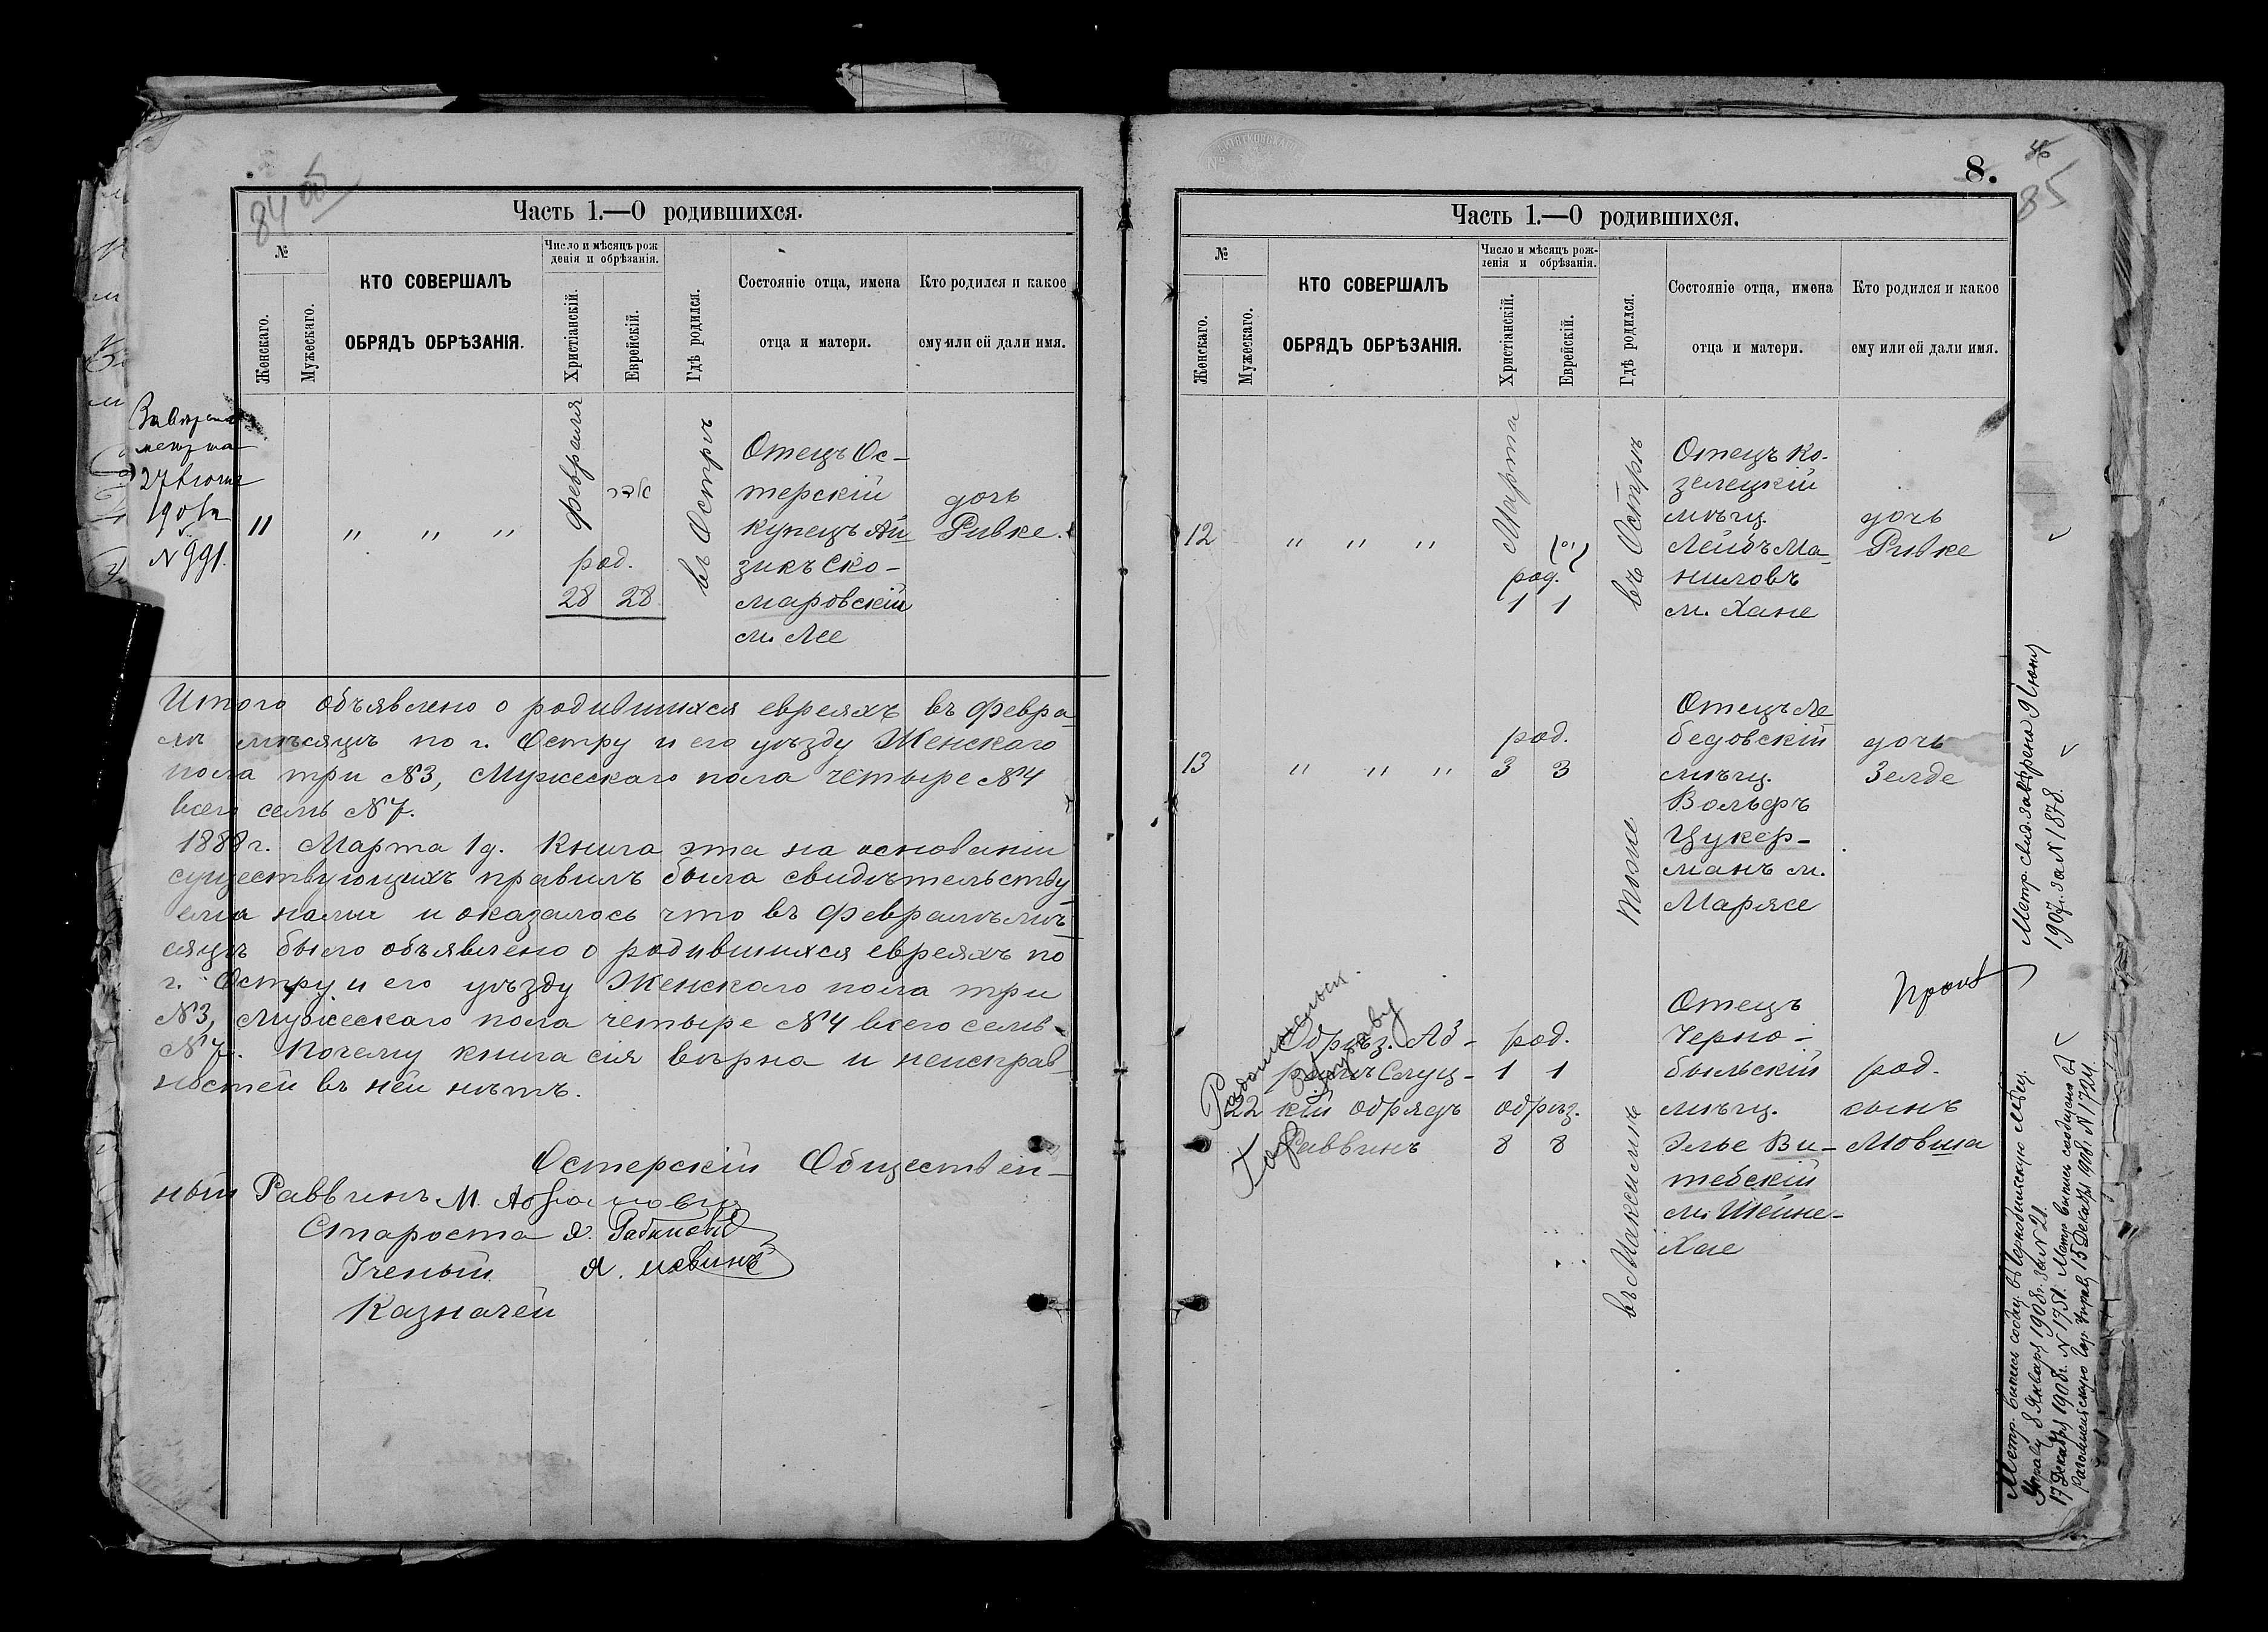 84 об
Часть 1.—О родившихся.
№
Женскаго.
Мужескаго.
КТО СОВЕРШАЛЪ
ОБРЯДЪ ОБРѢЗАНІЯ.
Число и мѣсяцъ рож
денія и обрѣзанія.
Христіанскій.
Еврейскій.
Гдѣ родился.
Состояніе отца, имена
отца и матери.
Кто родился и какое
ему или ей дали имя.
метр
27 Іюня
№ 991.
11
" " "
февраля
אדר
род.
28 28
въ Острѣ
Отецъ Ос-
терскій
купецъ Ай
зикъ Ско-
маровскій
м. Лее
дочь
Ривке.
Итого объявлено о родившихся евреяхъ въ Февра
лѣ мѣсяцѣ по г. Остру и его уѣзду Женскаго
пола три №3, Мужескаго пола четыре №4
всего семь №7.
1888 г. Марта 1 д. Книга эта на основаніи
существующихъ правилъ была свидѣтельству
ема нами и оказалось что въ Февралѣ мѣ
сяцѣ было объявлено о родившихся евреяхъ по
г. Остру и его уѣзду Женскаго пола три
№3, Мужескаго пола четыре №4 всего семь
№7. Почему книга сія вѣрна и неисправ
ностей въ ней нѣтъ.
Остерскій Обществен-
ный Раввинъ М.
Староста
Ученый
Казначей
8.
85
Часть 1.—О родившихся.
№
Женскаго.
Мужескаго.
КТО СОВЕРШАЛЪ
ОБРЯДЪ ОБРѢЗАНІЯ.
Число и мѣсяцъ рож-
денія и обрѣзанія.
Христіанскій.
Еврейскій.
Гдѣ родился.
Состояніе отца, имена
отца и матери.
Кто родился и какое
ему или ей дали имя.
12
" " "
Марта
род.
1 1
въ Острѣ
Отецъ Ко-
зелецкій
мѣщ.
Лейбъ Ма-
ниловъ
м. Хане
дочь
Ривке
13
" " "
род.
3 3
тоже
Отецъ Ле
бедовскій
мѣщ.
Вольфъ
Цукер-
манъ м.
Марясе
дочь
Зелде
22
Обрѣз. Аб-
рамъ Слуц-
кій обрядъ
Раввинъ
род.
1 1
обрѣз.
8 8
въ Максимѣ
Отецъ
Черно-
быльскій
мѣщ.
Элье Ви-
тебскій
м. Шейне-
Хае
род.
сынъ
Мовша
Метр. свид. завѣрена 9 Іюня
1907 г. за № 1878.
Метр. выпись сообщ. въ Чернобыльскую Мѣщ.
Управу 8 Января 1908 г. за № 21.
17 Декабря 1908 г. № 1751. Метр. выпись сообщена въ
Радомысльскую Гор. Управ. 15 Декабря 1908 г. № 1724.